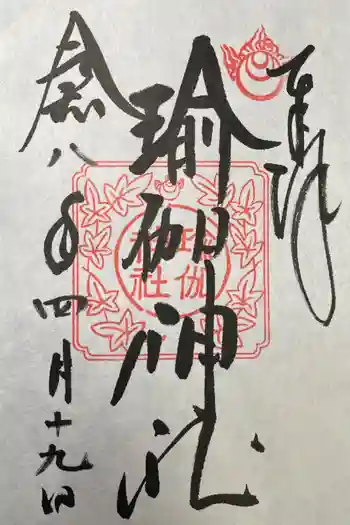 奉拝
瑜伽神社
令八年四月十九日
瑜伽
社